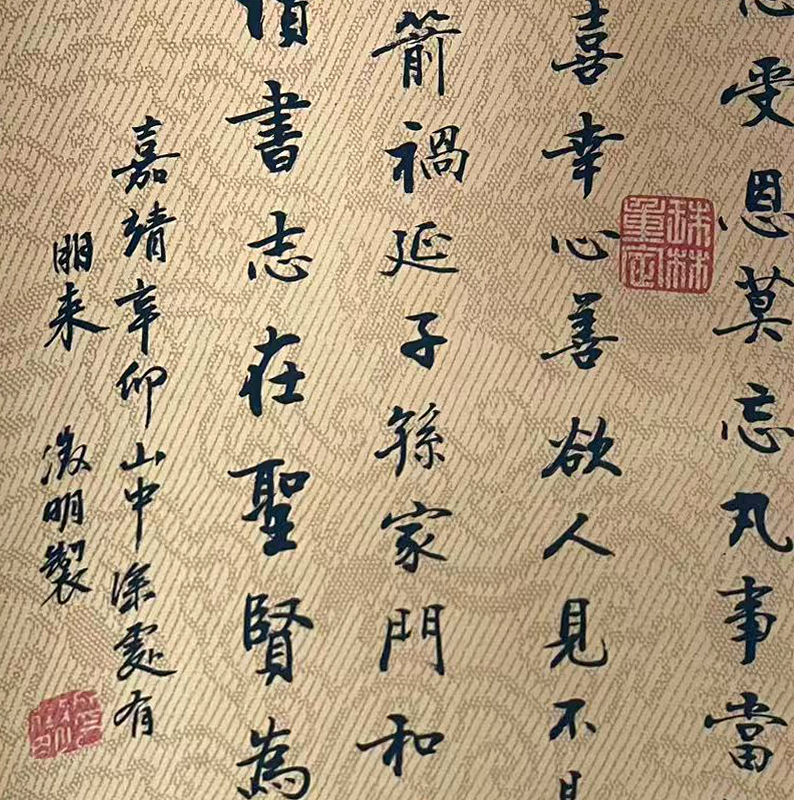 受恩莫忘凡事當
珠林重定
喜幸心善欲人見不
箭禍延子孫家門和
書志在聖賢為
嘉靖辛仰山中深處有
朋来 徵明製